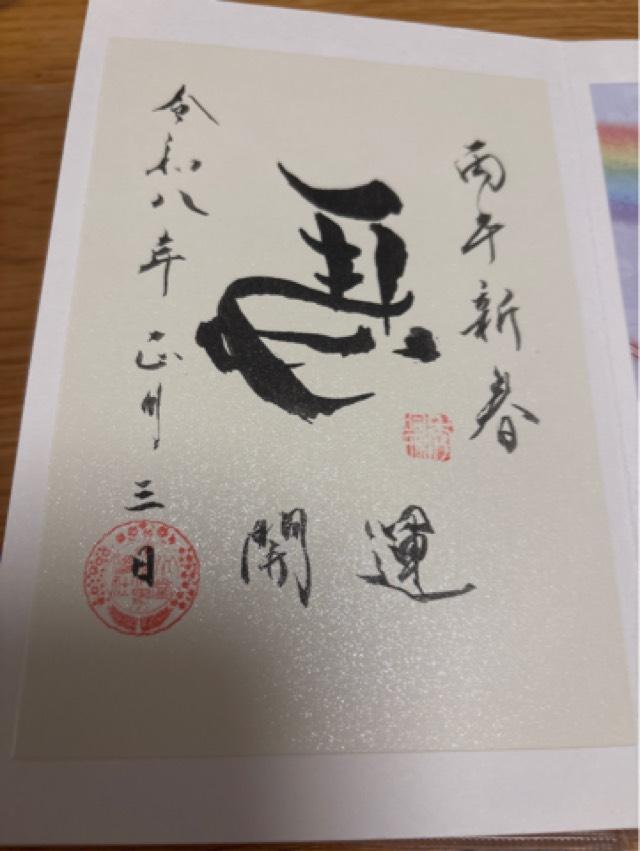 丙午新春
馬
開運
令和八年正月三日